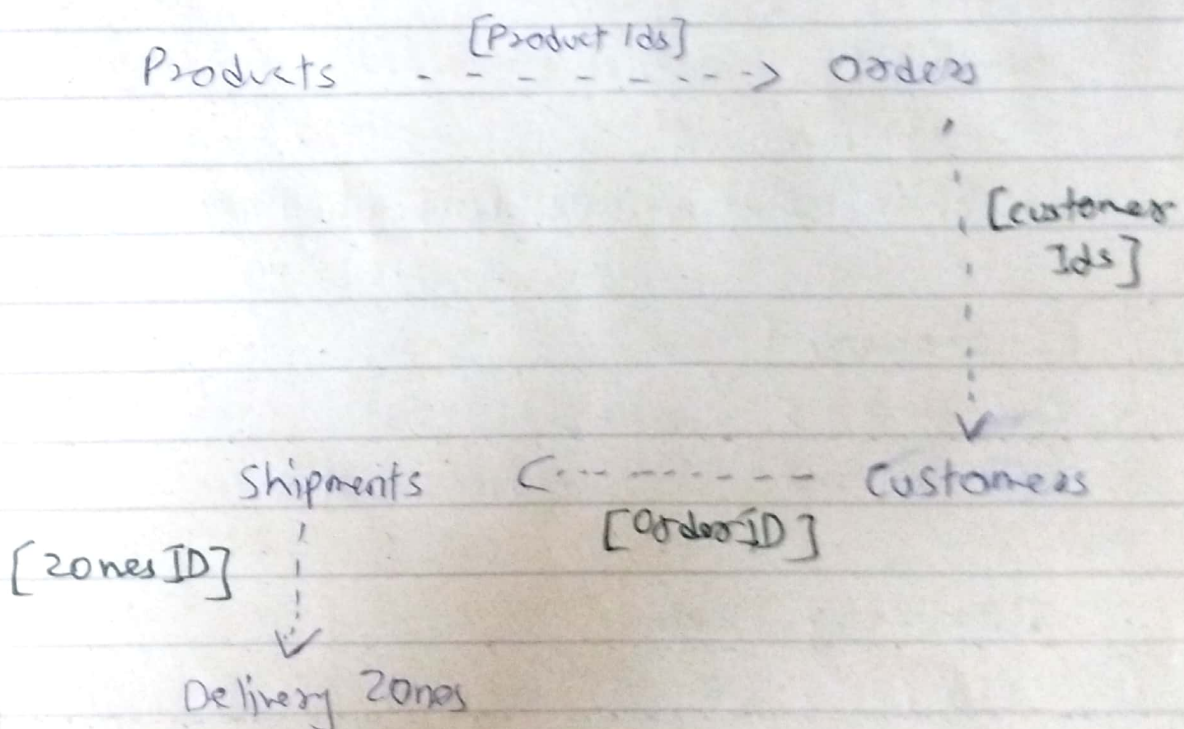 [Product Ids]
Products -------> Orders
[customer
Ids]
Shipments <------- Customers
[OrderID]
[zones ID]
Delivery Zones